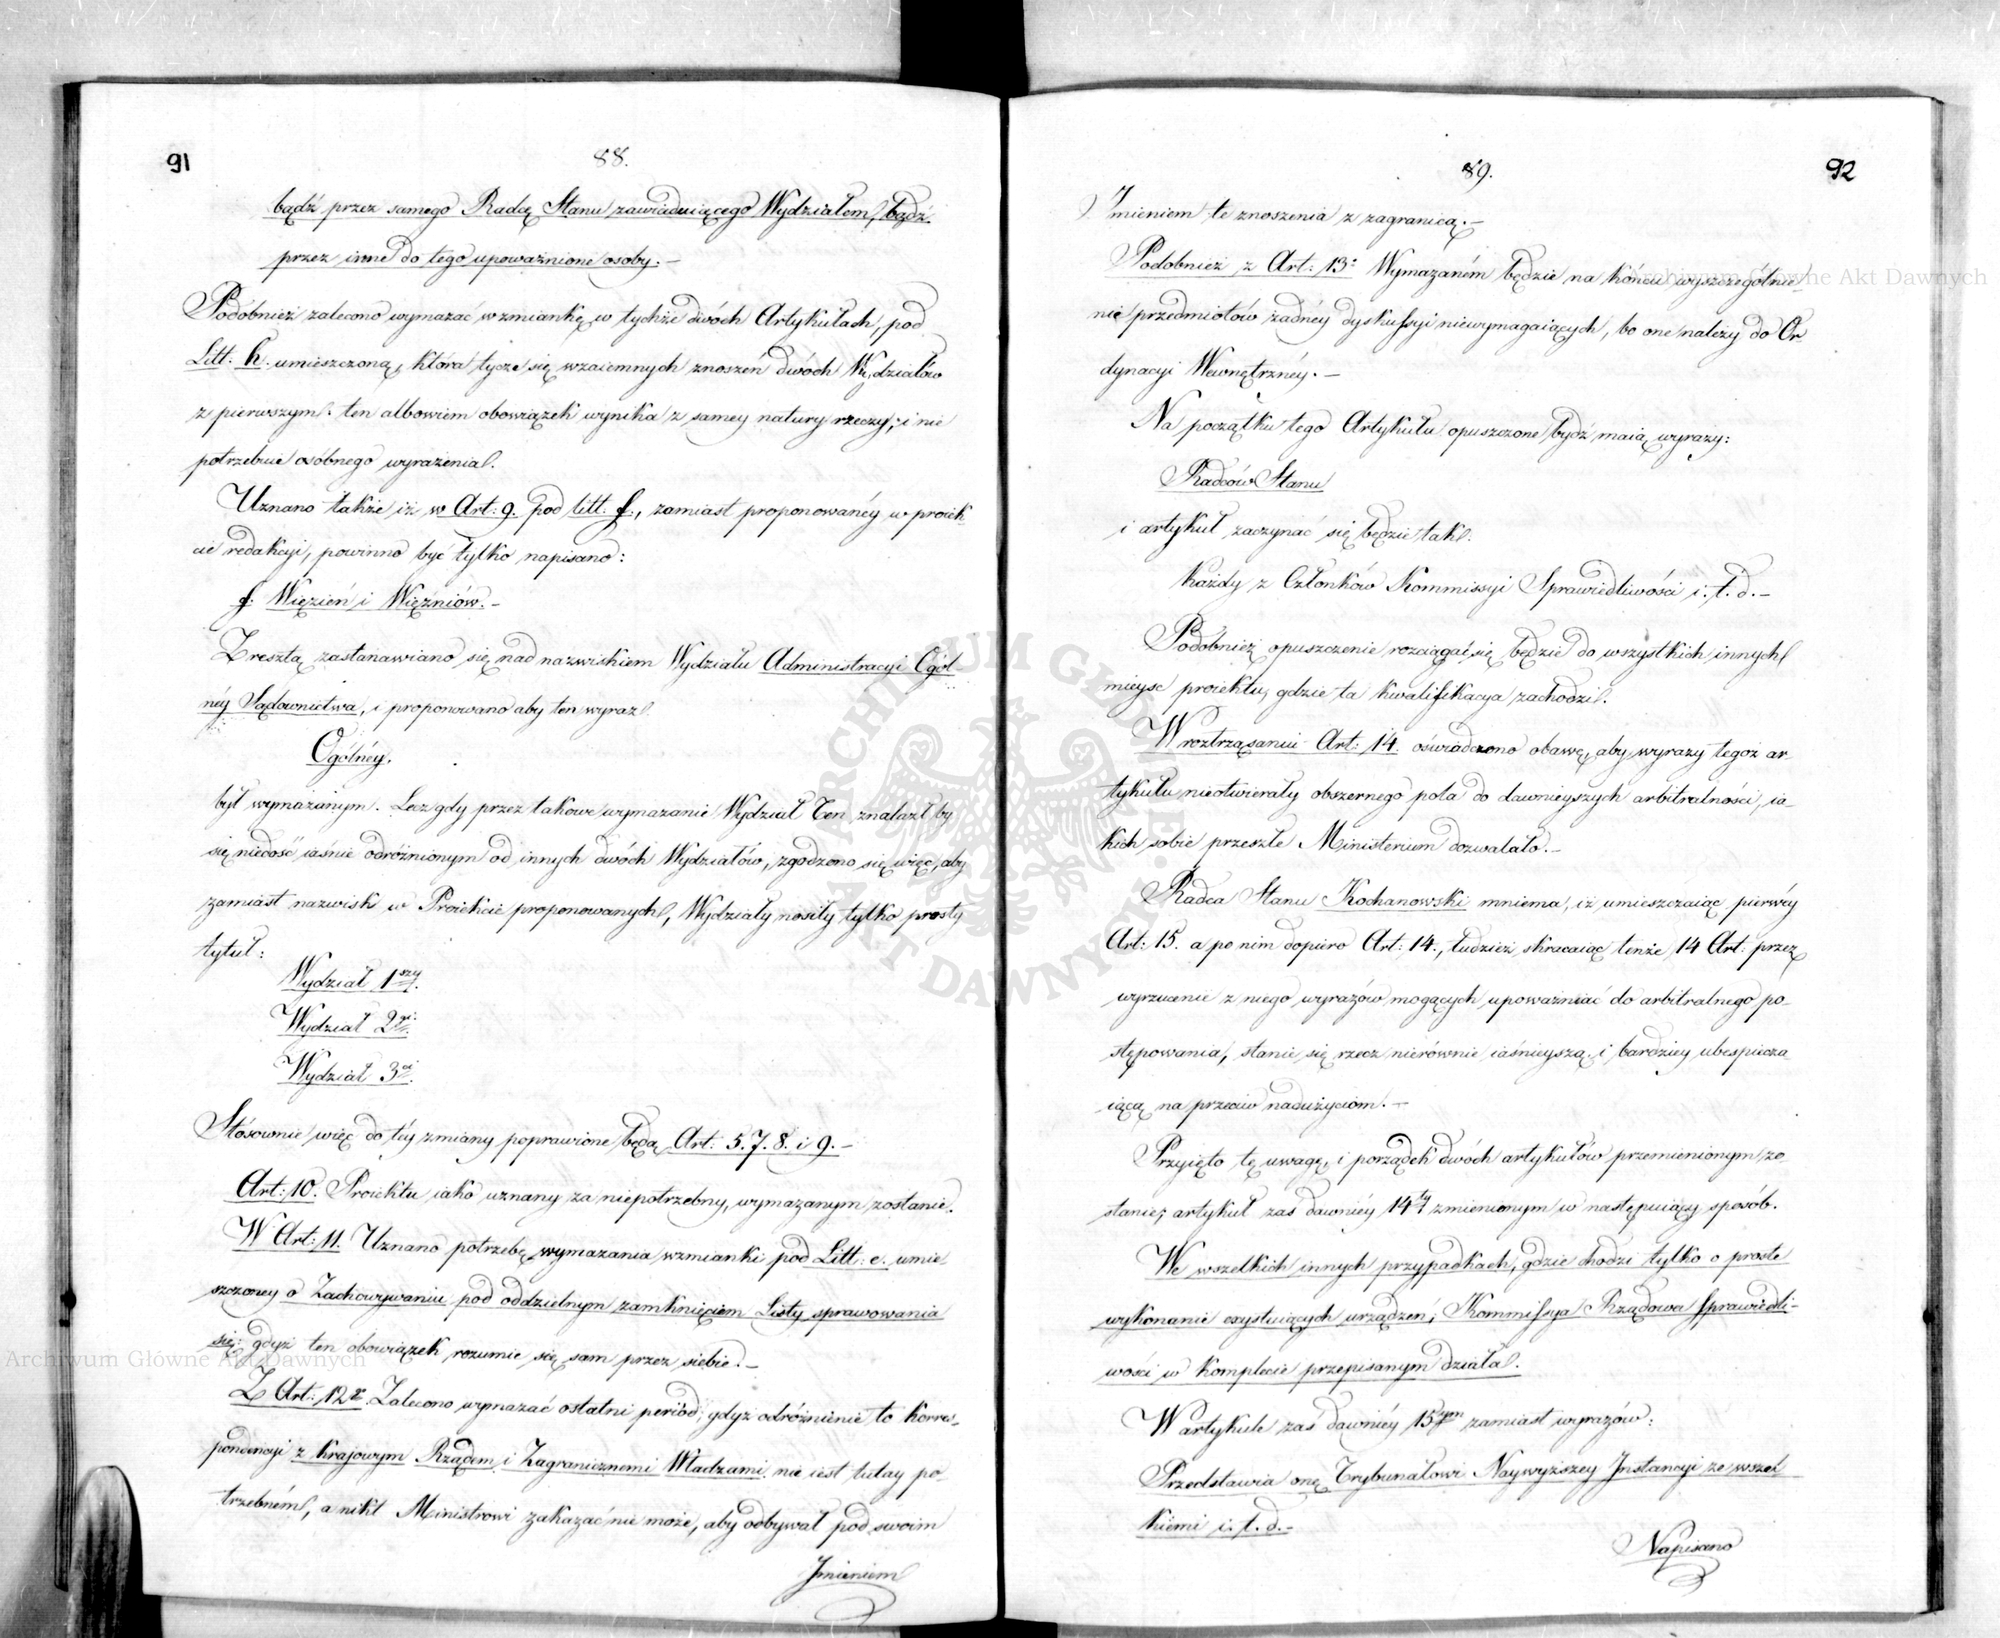 91
88.
bądź przez samego Radcę Stanu zawiaduiącego Wydziałem, bądź
przez inne do tego upoważnione osoby.-
Podóbnież zalecono wymazać wzmiankę w tychże dwóch Artykułach, pod
Litt. h. umieszczoną, która tycze się wzaiemnych znoszeń dwóch Wydziałów
z pierwszym: ten albowiem obowiązek wynika z samey natury rzeczy, i nie
potrzebuie osóbnego wyrażenia.
Uznano także iż w Art: 9. pod litt. f., zamiast proponowanéy w proiek
cie redakcyi, powinno być tylko napisano:
f. Więzień i Więźniów.-
Zresztą zastanawiano się nad nazwiskiem Wydziału Administracyi Ogól
néy Sądownictwa, i proponowano aby ten wyraz
Ogólnéy.
był wymazanym. Lecz gdy przez takowe wymazanie Wydział Ten znalazł by
się niedość iaśnie odróżnionym od innych dwóch Wydziałów, zgodzono się więc, aby
zamiast nazwisk w Proiekcie proponowanych, Wydziały nosiły tylko prosty
tytuł:
Wydział 1szy.
Wydział 2gi.
Wydział 3ci.
Stósownie więc do téy zmiany poprawione będą Art: 5. 7. 8. i 9.-
Art: 10. Proiektu iako uznany za niepotrzebny, wymazanym zostanie.
W Art: 11. Uznano potrzebę wymazania wzmianki pod Litt: e. umie
szczoney o Zachowywaniu pod oddzielnym zamknięciem Listy sprawowania
się: gdyż ten obowiązek rozumie się sam przez siebie.-
Z Art: 12. Zalecono wymazać ostatni period; gdyż odróżnienie to korres-
pondencyi z krajowym Rządem i Zagranicznemi Władzami nie iest tutay po
trzebném, a nikt Ministrowi zakazać nie może, aby odbywał pod swoim
Jmieniem
92
89.
Jmieniem te znoszenia z zagranicą.-
Podobnież z Art: 13. Wymazaném będzie na końcu wyszczególnie-
nie przedmiotów żadnéy dyskussyi niewymagaiących, bo one należy do Or-
dynacyi Wewnętrznéy.-
Na początku tego Artykułu opuszczone bydź maią wyrazy:
Radców Stanu
i artykuł zaczynać się będzie tak.
Każdy z Członków Kommissyi Sprawiedliwości i. t. d.-
Podobnież opuszczenie rozciągać się będzie do wszystkich innych
mieysc proiektu, gdzie ta kwalifikacya zachodzi.
W roztrząsaniu Art: 14. oświadczono obawę, aby wyrazy tegoż ar-
tykułu nieotwierały obszernego pola do dawnieyszych arbitralności, ia-
kich sobie przeszłe Ministerium dozwalało.-
Radca Stanu Kochanowski mniema, iż umieszczaiąc pierwéy
Art: 15. a po nim dopiero Art: 14., tudzież skracaiąc tenże 14 Art: przez
wyrzucenie z niego wyrazów mogących upoważniać do arbitralnego po-
stępowania, stanie się rzecz nierównie iaśnieyszą i bardziey ubespiecza
iącą na przeciw nadużyciom.-
Przyięto tę uwagę, i porządek dwóch artykułów przemienionym zo-
stanie, artykuł zaś dawniéy 14ty zmienionym w następuiący sposób.
We wszelkich innych przypadkach, gdzie chodzi tylko o proste
wykonanie exystuiących urządzeń, Kommissya Rządowa Sprawiedli-
wości w komplecie przepisanym działa.
W artykule zaś dawniéy 15tym zamiast wyrazów:
Przedstawia onę Trybunałowi Naywyższey Jnstancyi ze wszel
kiemi i. t. d.-
Napisano
Archiwum Główne Akt Dawnych
Archiwum Główne Akt Dawnych
ARCHIWUM GŁÓWNE AKT DAWNYCH